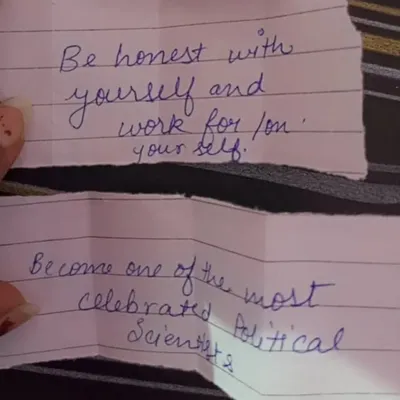 Be honest with
yourself and
work for/on
your self.
Become one of the most
celebrated Political
Scientists